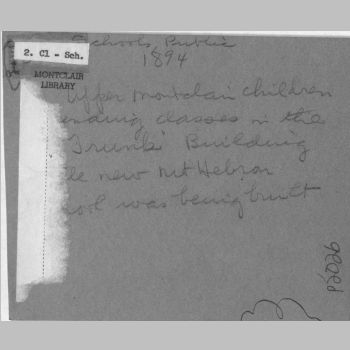 Schools, Public
1894
2. Cl - Sch.
MONTCLAIR
LIBRARY
Upper Montclair children
ending classes in the
"Trunk" Building
le new Mt Hebron
ool was being built
P2026